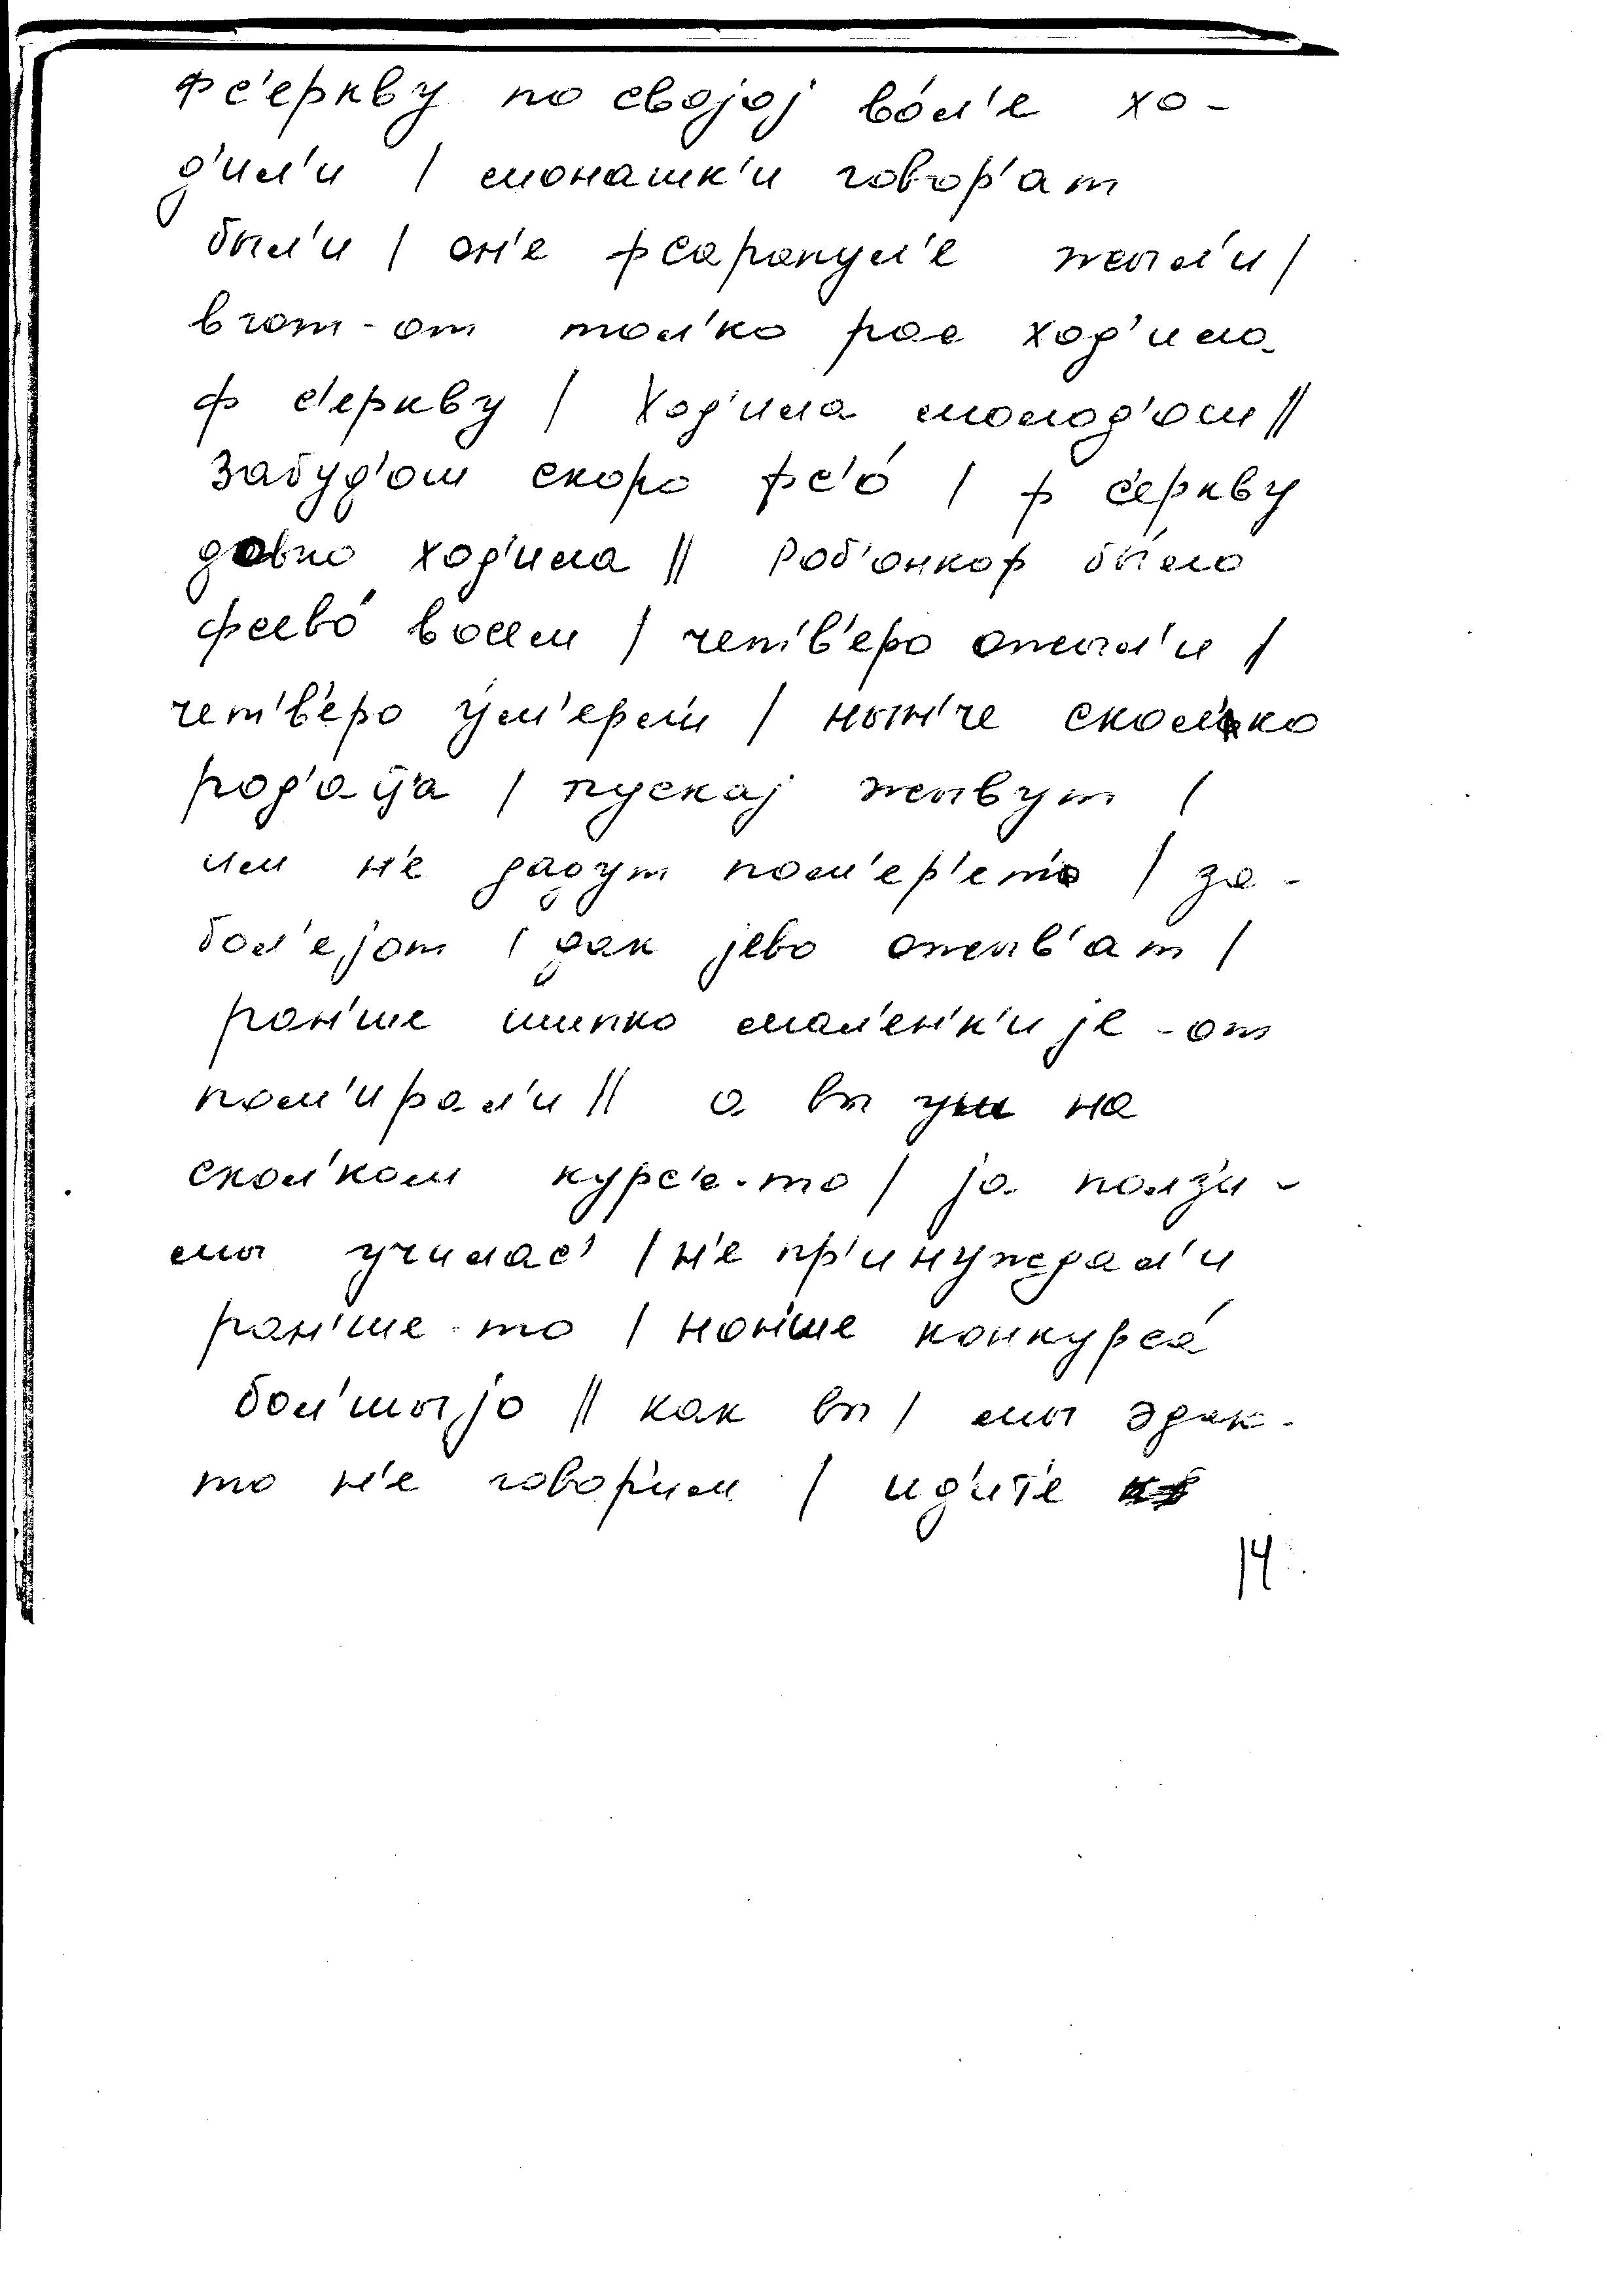 фс'еркву по својој во́л'е хо-
д'ил'и / монашк'и говор'ат
был'и / он'е фсарапул'е жыл'и /
вгот-от тол'ко рас ход'ила
ф с'еркву / ход'ила молод'ом //
забуд'ош скоро фс'о́ / ф с'еркву
давно ход'ила // роб'онкоф бы́ло
фс'ево́ вос'ем / чет'в'еро ожыл'и /
чет'в'еро у́м'ерл'и / нын'че скол'ко
род'аца / пускај жывут /
им н'е дадут пом'ер'ет' / за-
бол'ејот / дак јево ожыв'ат /
ран'ше шыпко мал'ен'к'и је-от
пом'ирал'и // а вы уш на
скол'ком курс'е-то / ја полз'и-
мы училас' / н'е пр'инуждал'и
ран'ше-то / нон'ше конкурса́
бол'шыјо // как вы / мы эдак-
то н'е говор'им / ид'ит'е
14